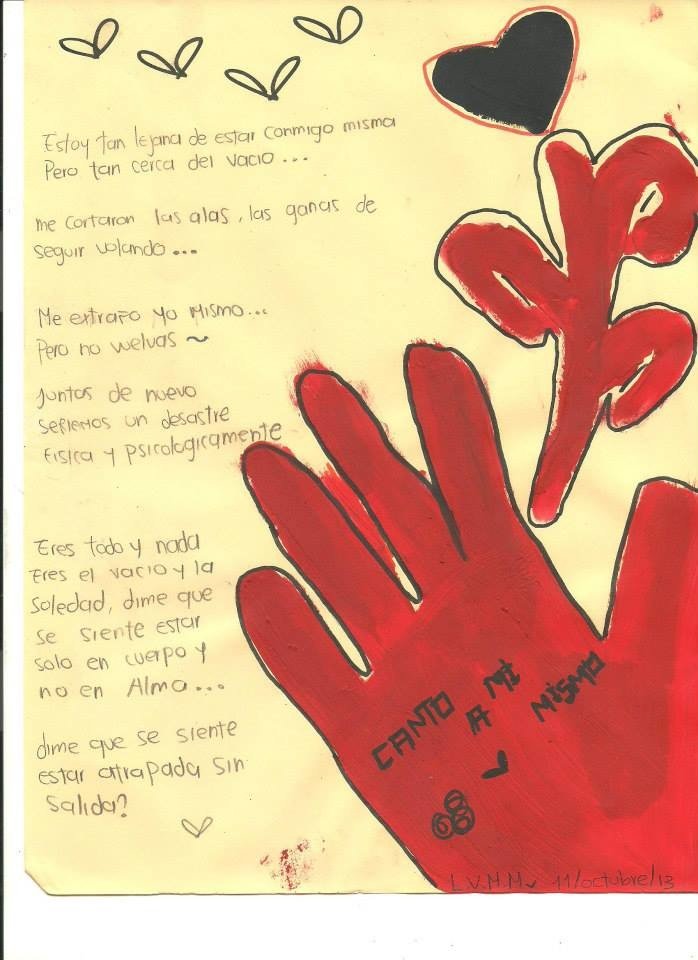 Estoy tan lejana de estar conmigo misma
Pero tan cerca del vacio...
me cortaron las alas, las ganas de
seguir volando...
Me extraño yo mismo...
Pero no vuelvas ~
Juntos de nuevo
seriemos un desastre
Fisica y psicologicamente
Eres todo y nada
Eres el vacio y la
Soledad, dime que
se siente estar
solo en cuerpo y
no en Alma...
dime que se siente
estar atrapada sin
salida?
CANTO A MI MISMO
L.V.M.M 11/octubre/13